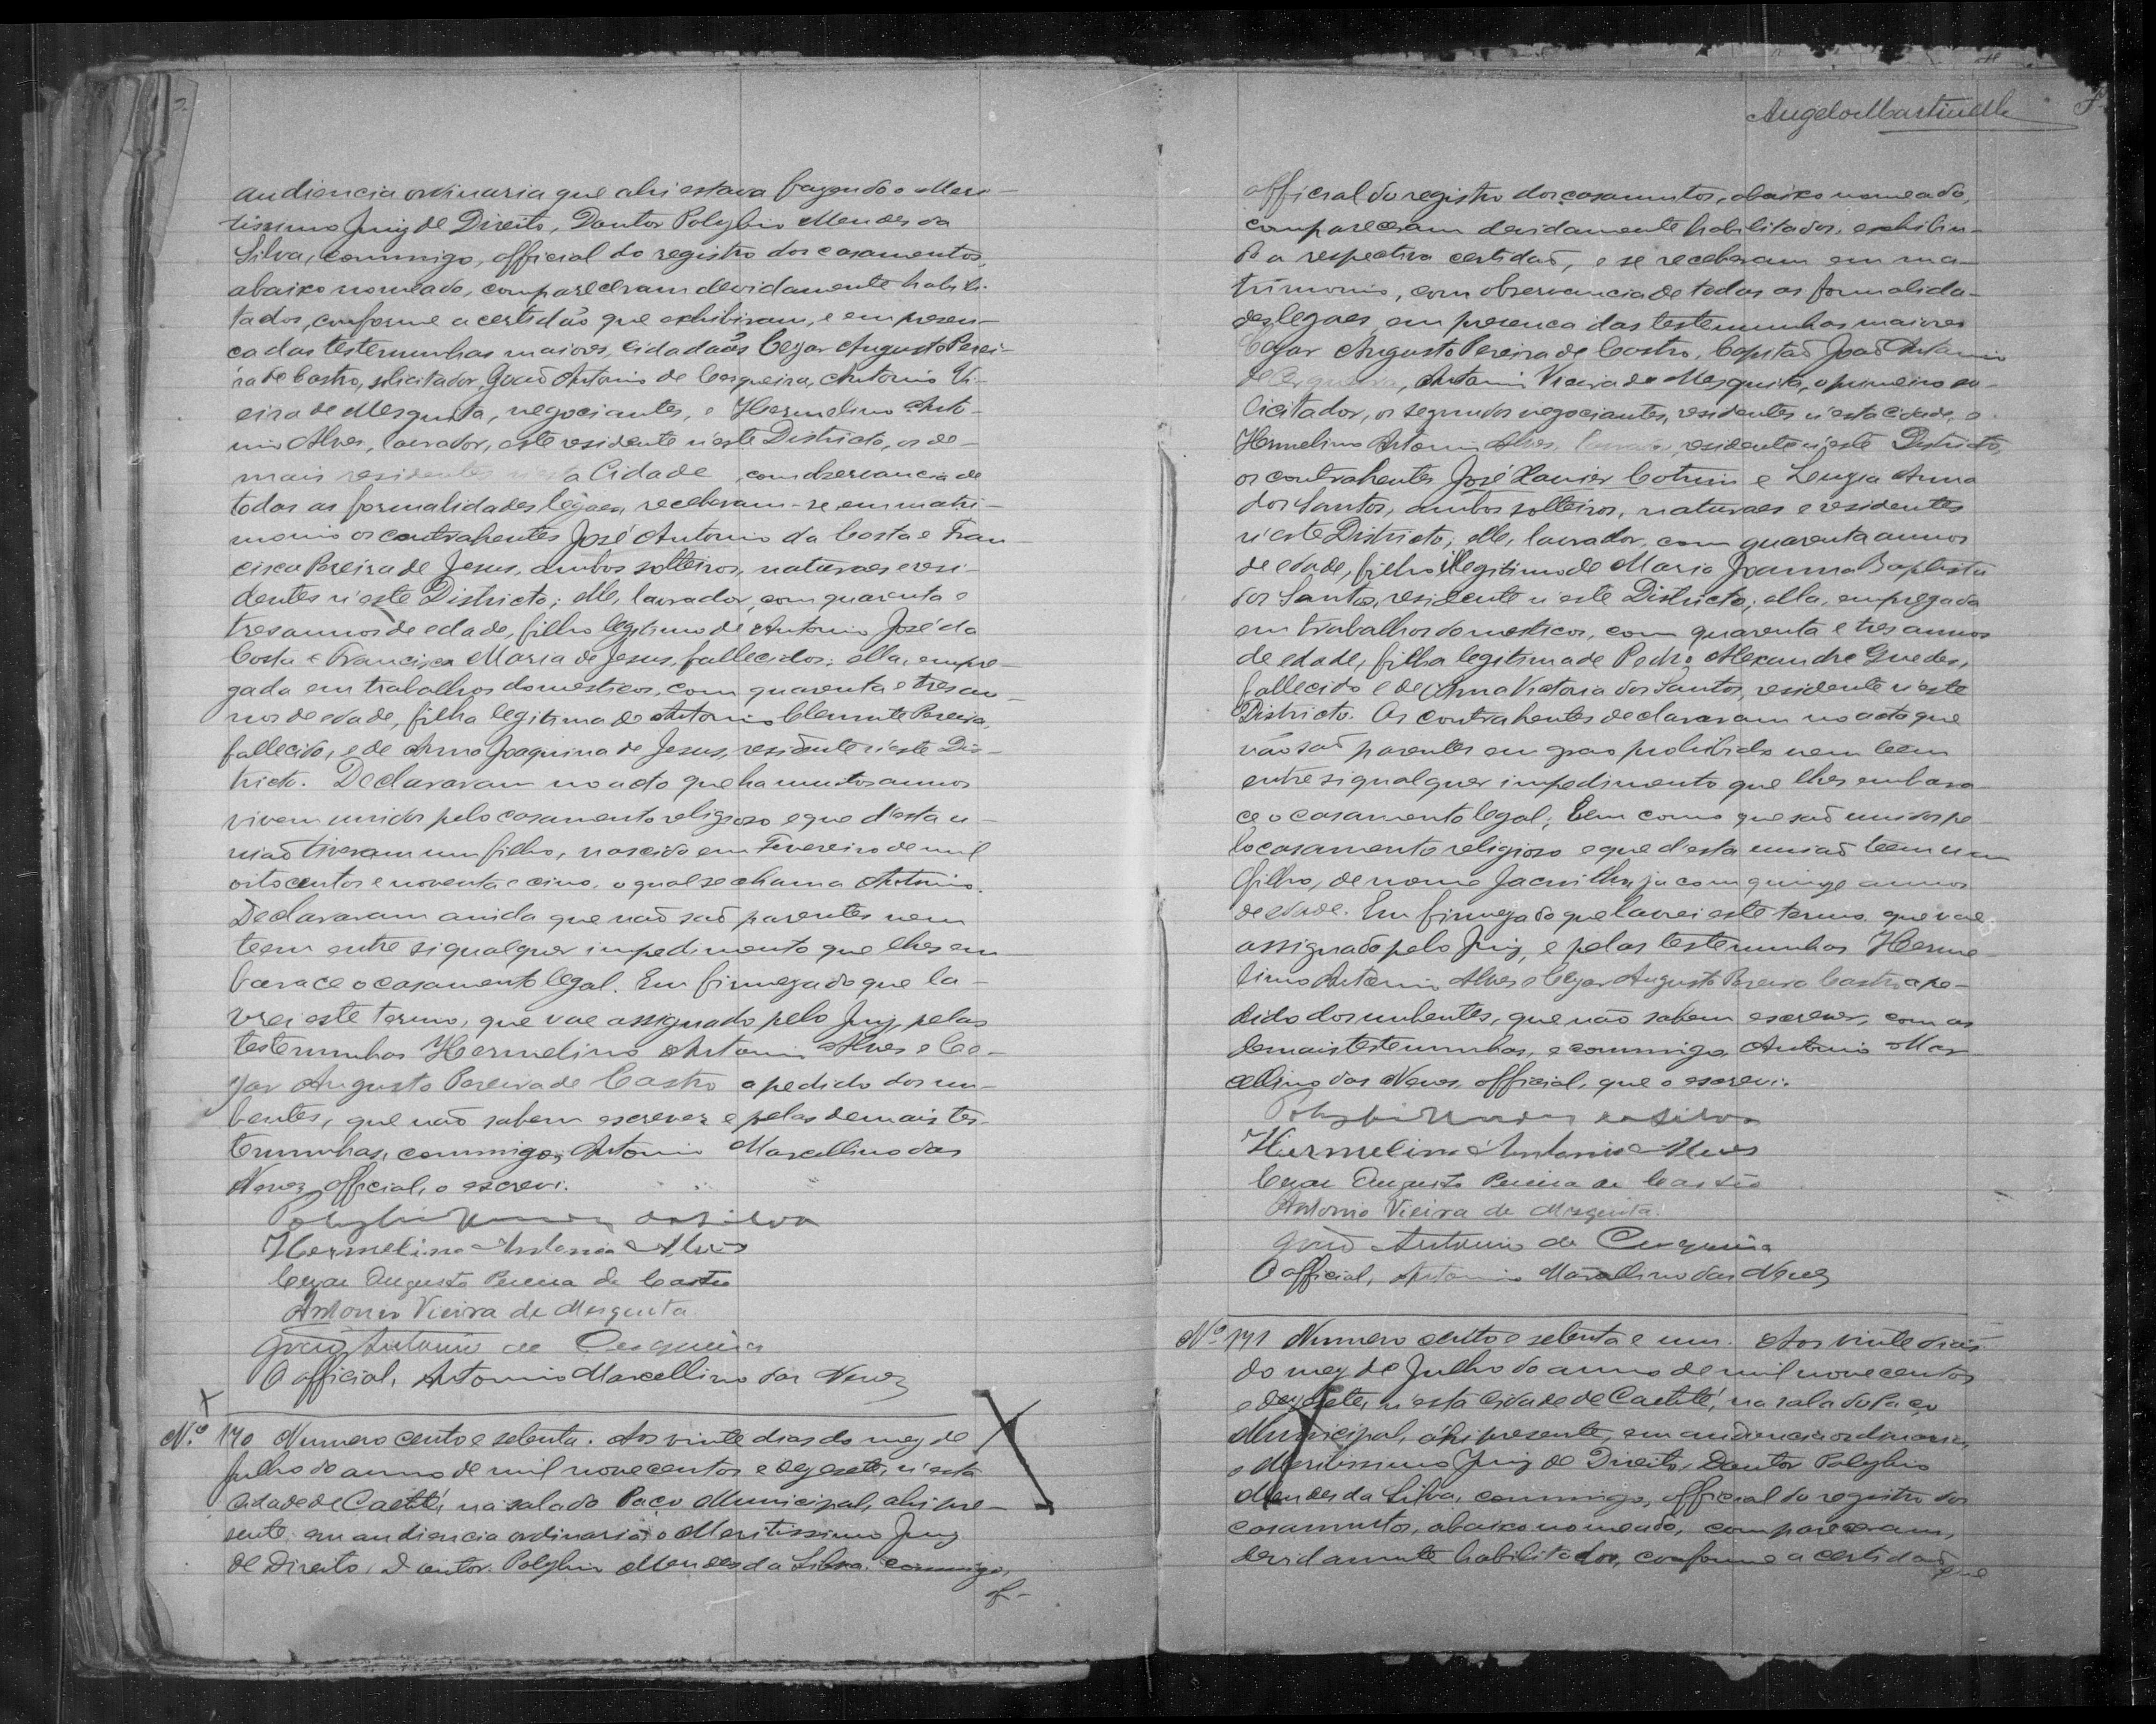 audiencia ordinaria que ahi estava fazendo o Meri-
tissimo Juiz de Direito, Doutor Polybio Mendes da
Silva, commigo, official do registro dos casamentos,
abaixo nomeado, compareceram devidamente habili-
tados, conforme a certidão que exhibiram, e em presen-
ça das testemunhas maiores, cidadaõs Cezar Augusto Perei-
ra de Castro, solicitador, Joaõ Antonio de Cerqueira, Antonio Vi-
eira de Mesquita, negociantes, e Hermelino Anto-
nio Alves, lavrador, este residente n'este Districto, os de-
mais residentes n'esta Cidade, com observancia de
todas as formalidades legaes, receberam-se em matri-
monio os contrahentes José Antonio da Costa e Fran-
cisca Pereira de Jesus, ambos solteiros, naturaes e resi-
dentes n'este Districto; elle, lavrador, com quarenta e
tres annos de edade, filho legitimo de Antonio José da
Costa e Francisca Maria de Jesus, fallecidos; ella, empre-
gada em trabalhos domesticos, com quarenta e tres an-
nos de edade, filha legitima de Antonio Clemente Pereira,
fallecido, e de Anna Joaquina de Jesus, residente n'este Dis-
tricto. Declararam no acto que ha muitos annos
vivem unidos pelo casamento religioso e que d'esta u-
niaõ tiveram um filho, nascido em Fevereiro de mil
oitocentos e noventa e cinco, o qual se chama Antonio.
Declararam ainda que naõ saõ parentes nem
teem entre si qualquer impedimento que lhes em
barace o casamento legal. Em firmeza do que la-
vrei este termo, que vae assignado pelo Juiz, pelas
testemunhas Hermelino Antonio Alves e Ce-
zar Augusto Pereira de Castro a pedido dos nu-
bentes, que naõ sabem escrever e pelas demais tes-
temunhas, commigo, Antonio Marcellino das
Neves, official, o escrevi.
Polybio Mendes da Silva
Hermelino Antonio Alves
Cezar Augusto Pereira de Castro
Antonio Vieira de Mesquita.
João Antonio de Cerqueira
O official, Antonio Marcellino das Neves
N.º 170 Numero cento e setenta. Aos vinte dias do mez de
Julho do anno de mil novecentos e dezesete, n'esta
Cidade de Caetité, na sala do Paço Municipal, ahi pre-
sente em audiencia ordinaria o Meritissimo Juiz
de Direito, Doutor Polybio Mendes da Silva, commigo,
of-
Angelo Martinelli
official do registro dos casamentos, abaixo nomeado,
compareceram devidamente habilitados, exhibin-
do a respectiva certidaõ, e se receberam em ma-
trimonio, com observancia de todas as formalida-
des legaes, em presença das testemunhas maiores
Cezar Augusto Pereira de Castro, Capitaõ Joaõ Antonio
de Cerqueira, Antonio Vieira de Mesquita, o primeiro so-
licitador, os segundos negociantes, residentes n'esta cidade, e
Hermelino Antonio Alves, lavrador, residente n'este Districto,
os contrahentes José Xavier Cotrim e Luzia Anna
dos Santos, ambos solteiros, naturaes e residentes
n'este Districto; elle, lavrador, com quarenta annos
de edade, filho illegitimo de Maria Joanna Baptista
dos Santos, residente n'este Districto; ella, empregada
em trabalhos domesticos, com quarenta e tres annos
de edade, filha legitima de Pedro Alexandre Guedes,
fallecido e de Anna Victoria dos Santos, residente n'este
Districto. Os contrahentes declararam no acto que
não saõ parentes em grao prohibido nem teem
entre si qualquer impedimento que lhes embara-
ce o casamento legal; bem como que saõ unidos pe-
lo casamento religioso e que d'esta uniaõ teem um
filho, de nome ja com quinze annos
de edade. Em firmeza do que lavrei este termo que vae
assignado pelo Juiz, e pelas testemunhas Herme-
lino Antonio Alves e Cezar Augusto Pereira Castro a pe-
dido dos nubentes, que não sabem escrever, com as
demais testemunhas, e commigo Antonio Mar-
cellino das Neves, official, que o escrevi.
Polybio Mendes da Silva
Hermelino Antonio Alves
Cezar Augusto Pereira de Castro
Antonio Vieira de Mesquita.
João Antonio de Cerqueira
O official, Antonio Marcellino das Neves
Nº 171 Numero cento e setenta e um. Aos vinte dias
do mez de Julho do anno de mil novecentos
e dezesete, n'esta Cidade de Caetité, na sala do Paço
Municipal, ahi presente, em audiencia ordinaria,
o Meritissimo Juiz de Direito, Doutor Polybio
Mendes da Silva, commigo, official do registro dos
casamentos, abaixo nomeado, compareceram,
devidamente habilitados, conforme a certidaõ
que